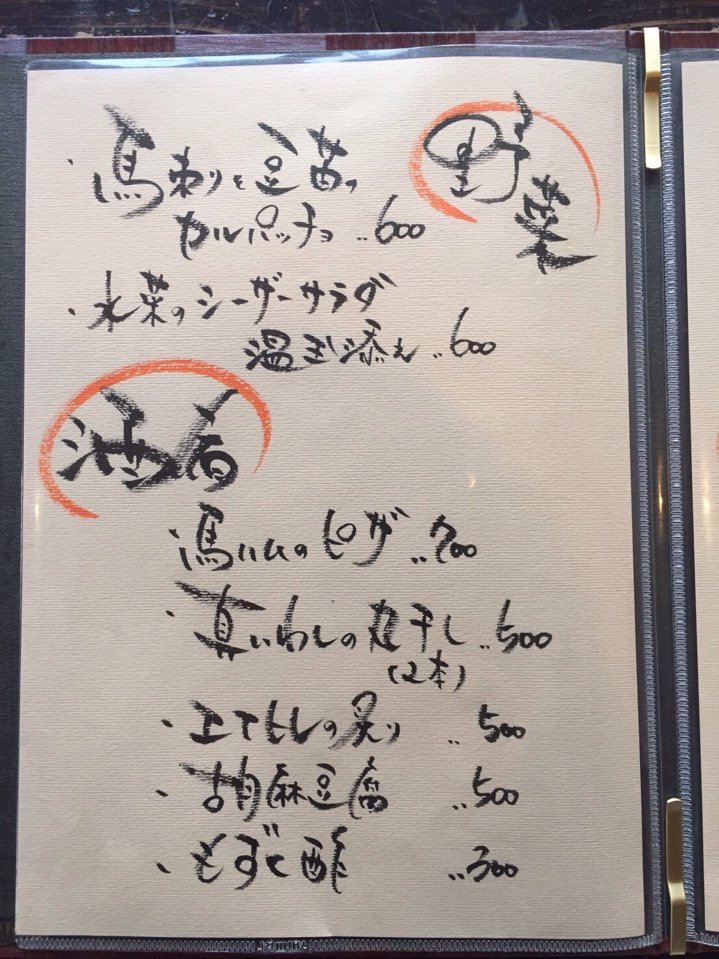 野菜
・馬刺しと豆苗の
カルパッチョ ‥600
・水菜のシーザーサラダ
温玉添え ‥600
酒肴
馬ハムのピザ ‥700
・真いわしの丸干し ‥500
(2本)
・エイヒレの炙り ‥500
・胡麻豆腐 ‥500
・もずく酢 ‥300